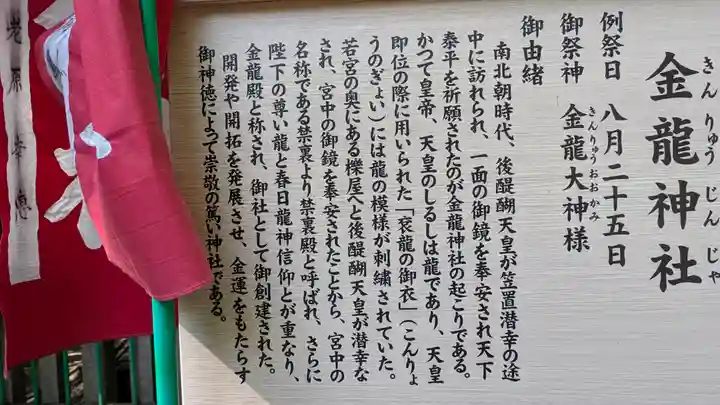 金龍神社
きんりゅうじんじゃ
例祭日 八月二十五日
御祭神 金龍大神様
きんりゅうおおかみ
御由緒
南北朝時代、後醍醐天皇が笠置潜幸の途
中に訪れられ、一面の御鏡を奉安され天下
泰平を祈願されたのが金龍神社の起こりである。
かつて皇帝、天皇のしるしは龍であり、天皇
即位の際に用いられた「袞龍の御衣」(こんりょ
うのぎょい)には龍の模様が刺繍されていた。
若宮の奥にある櫟屋へと後醍醐天皇が潜幸な
され、宮中の御鏡を奉安されたことから、宮中の
名称である禁裏より禁裏殿と呼ばれ、さらに
陛下の尊い龍と春日龍神信仰とが重なり、
金龍殿と称され、御社として御創建された。
開発や開拓を発展させ、金運をもたらす
御神徳によって崇敬の篤い神社である。